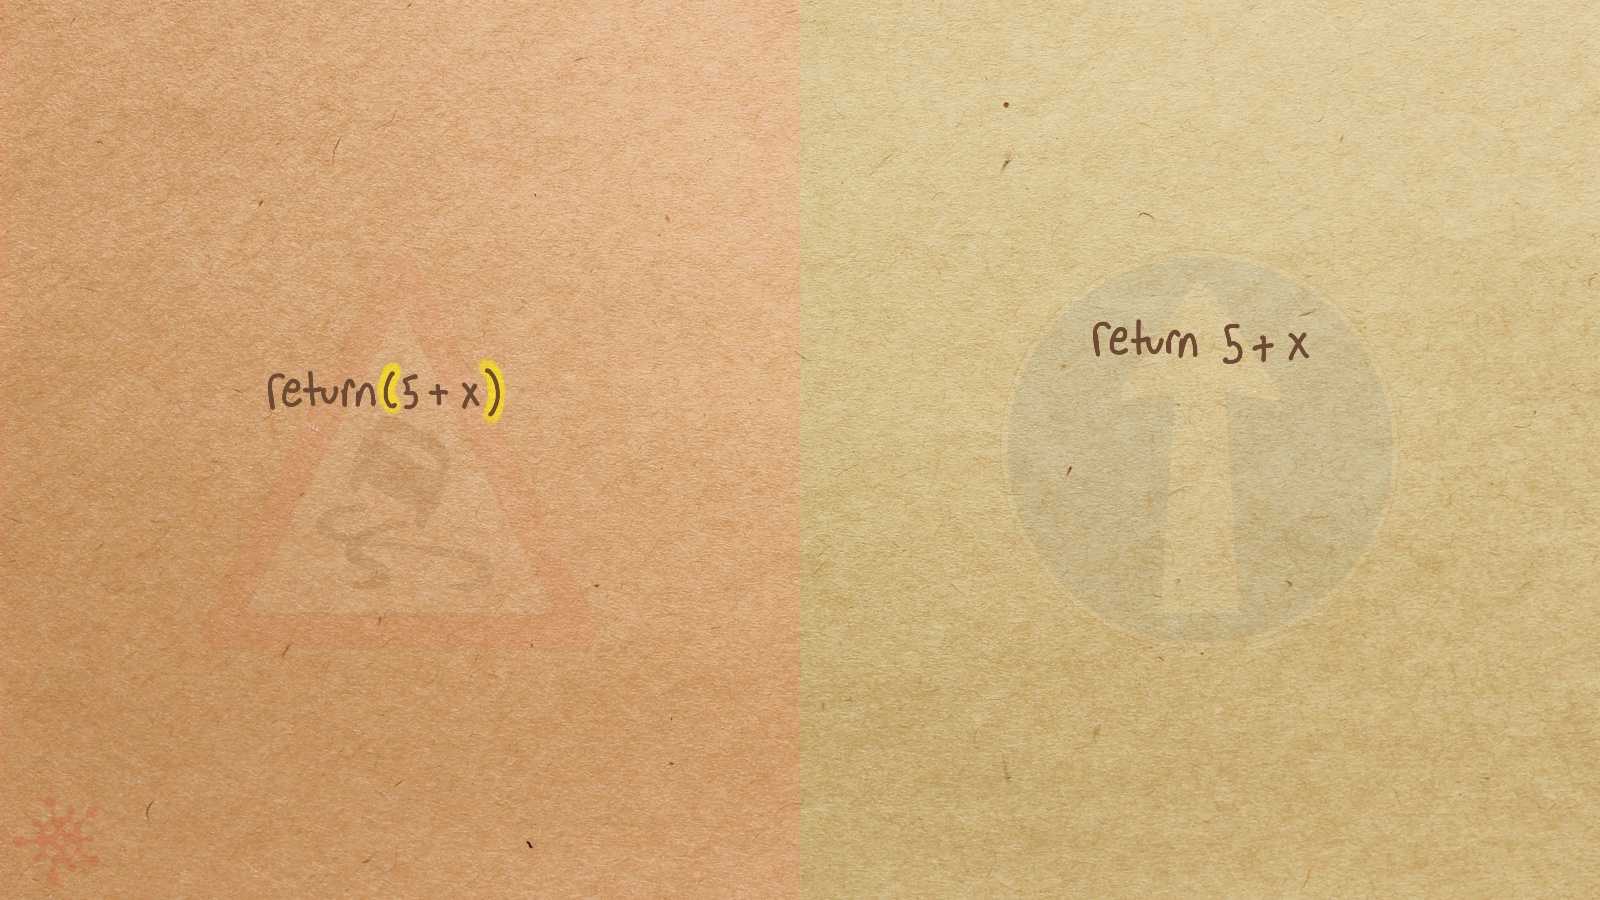 return(5 + x)
return 5 + x